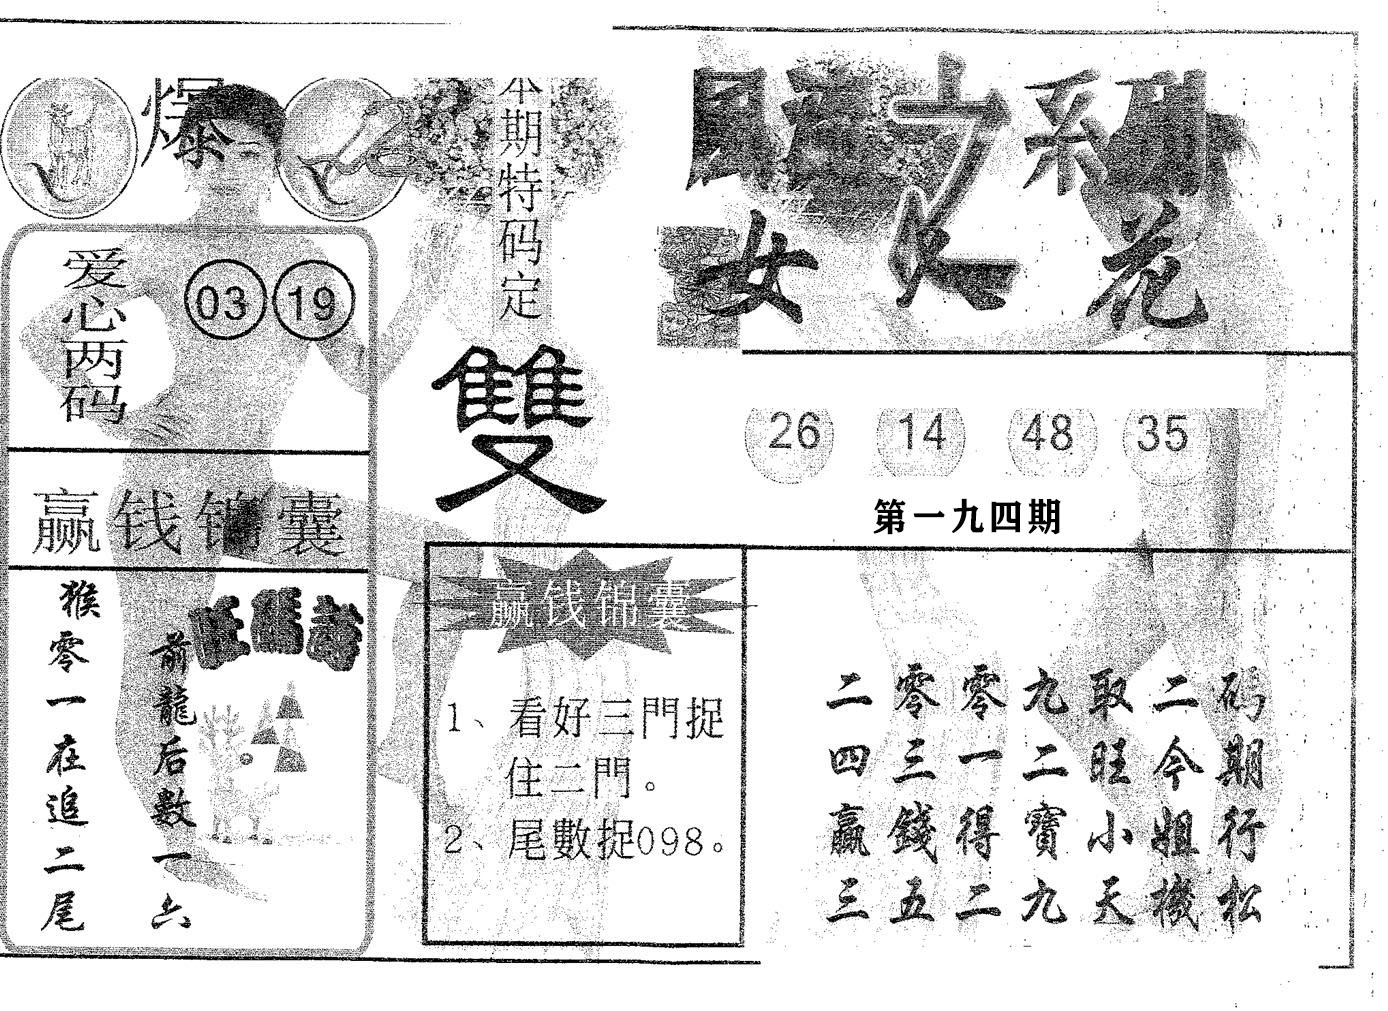 爆
本期特码定
雙
女人花
爱心两码
03 19
26 14 48 35
第一九四期
赢钱锦囊
猴零一在追二尾
前龍后數一六
赢钱锦囊
1、看好三門捉
住二門。
2、尾數捉098。
二零零九取二码
四三一二旺今期
赢錢得寶小姐行
三五二九天機松